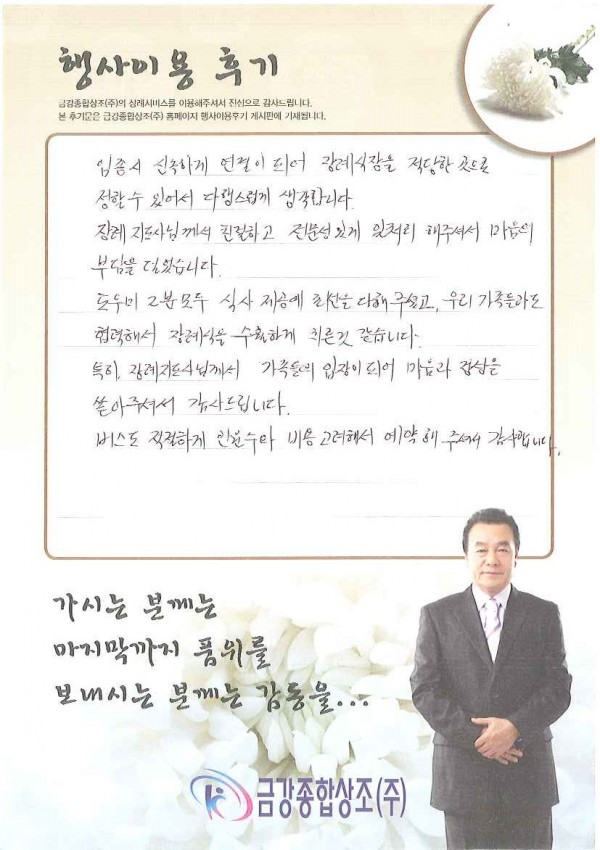 행사이용 후기
금강종합상조(주)의 상례서비스를 이용해주셔서 진심으로 감사드립니다.
본 후기문은 금강종합상조(주) 홈페이지 행사이용후기 게시판에 기재됩니다.
임종시 신속하게 연결이 되어 장례식장을 적당한 곳으로
정할 수 있어서 다행스럽게 생각합니다.
장례지도사님께서 친절하고 전문성있게 일처리 해주셔서 마음의
부담을 덜었습니다.
도우미 2분 모두 식사 제공에 최선을 다해 주셨고, 우리 가족들과도
협력해서 장례식을 수월하게 치른것 같습니다.
특히, 장례지도사님께서 가족들의 입장이 되어 마음과 정성을
쏟아주셔서 감사드립니다.
버스도 적절하게 인원수와 비용 고려해서 예약해 주셔서 감사합니다.
가시는 분께는
마지막까지 품위를
보내시는 분께는 감동을...
금강종합상조(주)